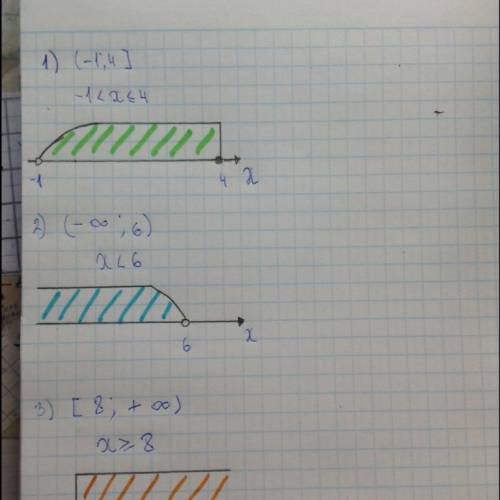 1) (-1; 4]
-1 < x ≤ 4
-1 4 x
2) (-∞; 6)
x < 6
6 x
3) [8; +∞)
x ≥ 8